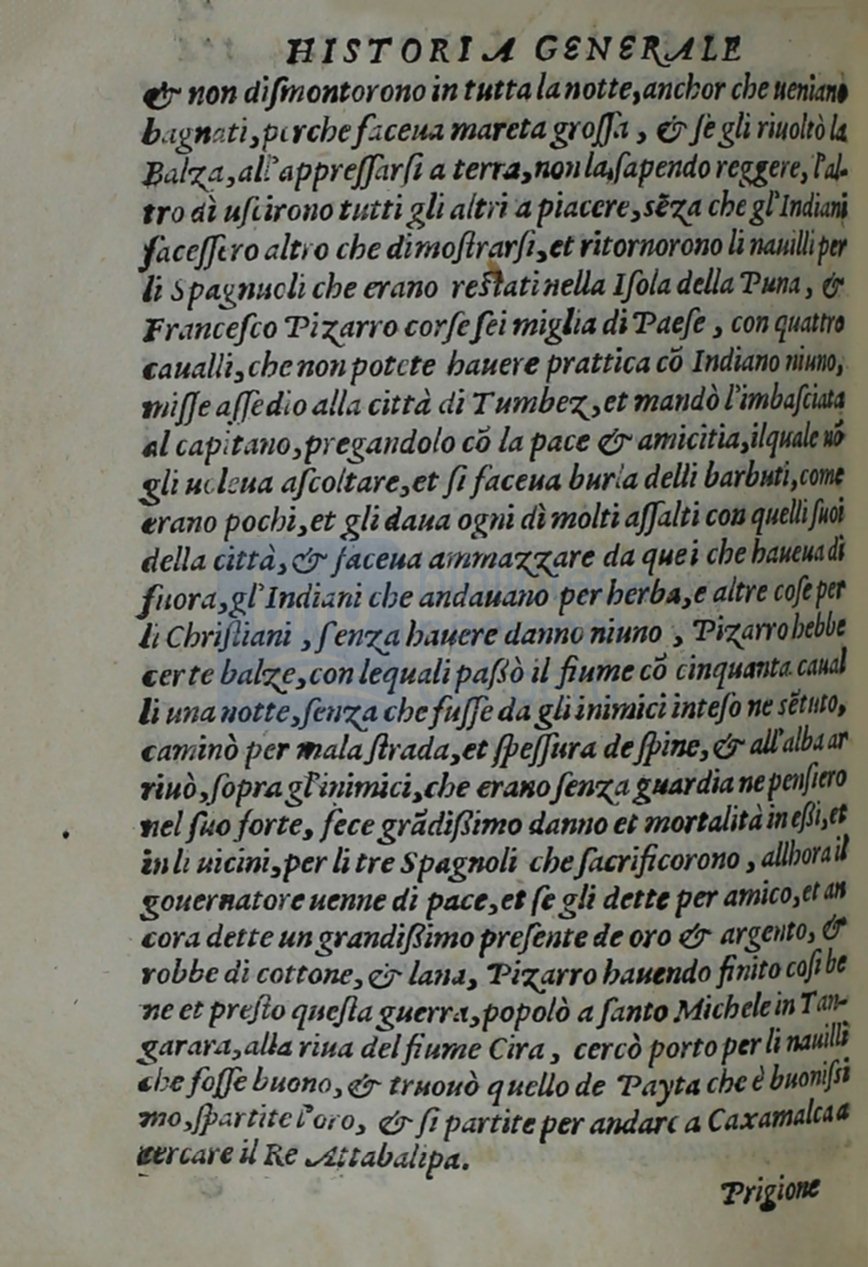 HISTORIA GENERALE
& non diſmontorono in tutta la notte, anchor che ueniano
bagnati, perche faceua mareta groſſa, & ſe gli riuoltò la
Balza, all'appreſſarſi a terra, non la ſapendo reggere, l'al-
tro dì uſcirono tutti gli altri a piacere, sẽza che gl'Indiani
faceſſero altro che dimoſtrarſi, et ritornorono li nauilli per
li Spagnuoli che erano reſtati nella Iſola della Puna, &
Franceſco Pizarro corſe ſei miglia di Paeſe, con quattro
caualli, che non potete hauere prattica cõ Indiano niuno,
miſſe aſſedio alla città di Tumbez, et mandò l'imbaſciata
al capitano, pregandolo cõ la pace & amicitia, ilquale nõ
gli uoleua aſcoltare, et ſi faceua burla delli barbuti, come
erano pochi, et gli daua ogni dì molti aſſalti con quelli ſuoi
della città, & faceua ammazzare da quei che haueua di
fuora, gl'Indiani che andauano per herba, e altre coſe per
li Chriſtiani, ſenza hauere danno niuno, Pizarro hebbe
certe balze, con lequali paſſò il fiume cõ cinquanta caual
li una notte, ſenza che fuſſe da gli inimici inteſo ne sẽtuto,
caminò per mala ſtrada, et ſpeſſura de ſpine, & all'alba ar
riuò, ſopra gl'inimici, che erano ſenza guardia ne penſiero
nel ſuo forte, fece grãdiſſimo danno et mortalità in eſſi, et
in li uicini, per li tre Spagnoli che ſacrificorono, allhora il
gouernatore uenne di pace, et ſe gli dette per amico, et an
cora dette un grandiſſimo preſente de oro & argento, &
robbe di cottone, & lana, Pizarro hauendo finito coſi be
ne et preſto queſta guerra, popolò a ſanto Michele in Tan-
garara, alla riua del fiume Cira, cercò porto per li nauilli
che foſſe buono, & truouò quello de Payta che è buoniſſi
mo, ſpartite l'oro, & ſi partite per andare a Caxamalca a
cercare il Re Attabalipa.
Prigione